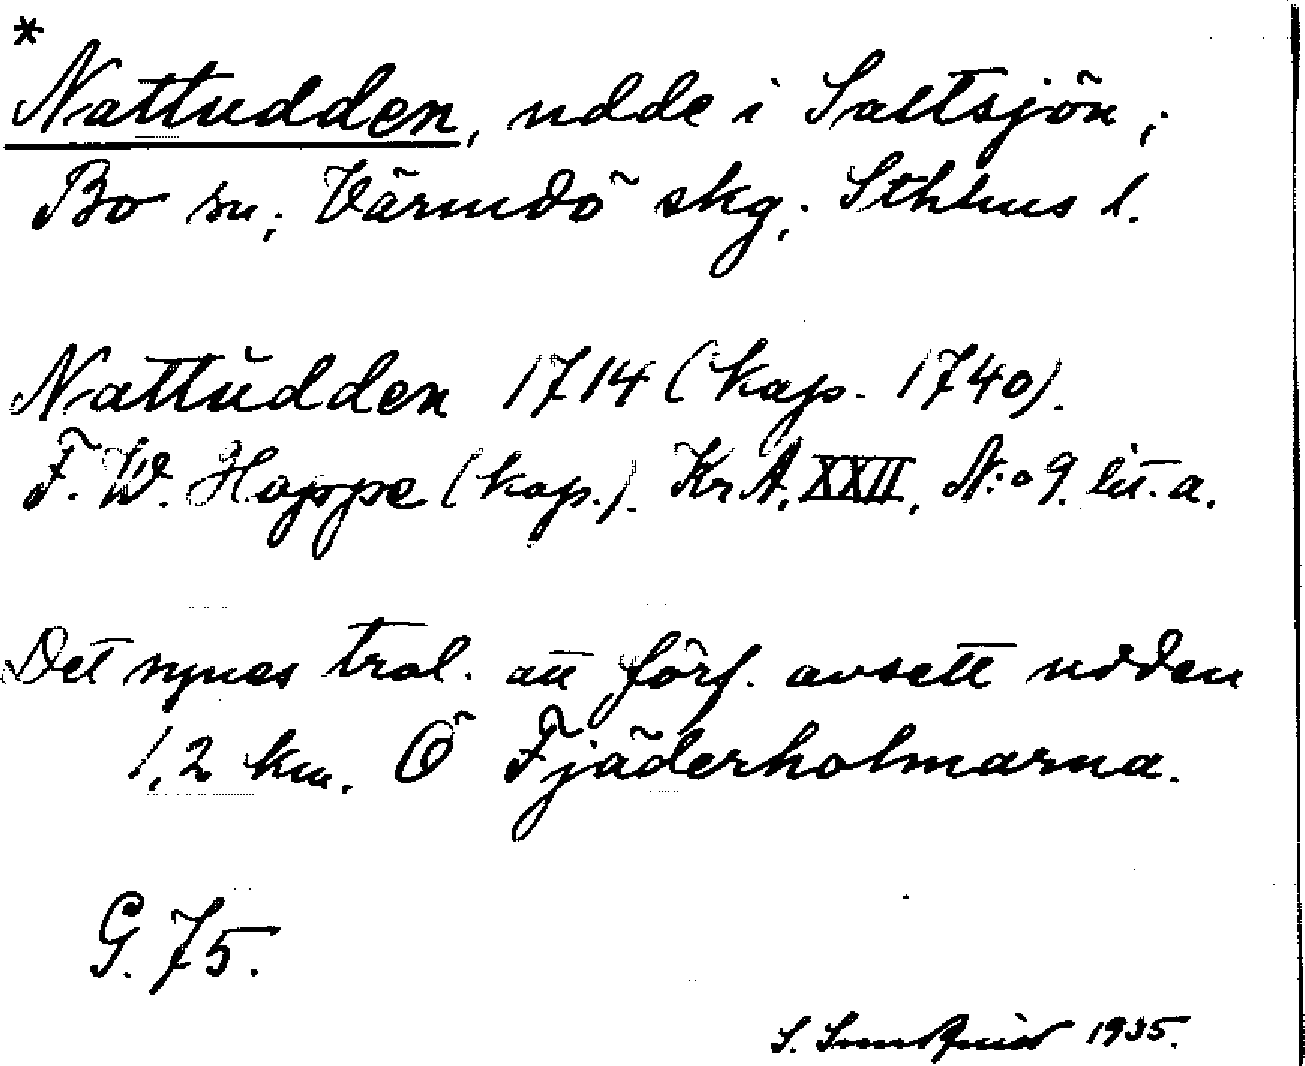 * Nattudden, udde i Saltsjön,
Bo sn, Värmdö skg, Sthlms l.
Nattŭdden 1714 (kop. 1740).
F. W. Hoppe (kop.). KrA, XXII, N:o 9. lit. a.
Det synes trol. att förf. avsett udden
1,2 km. Ö Fjäderholmarna.
G. 75.
S. Sundquist 1935.